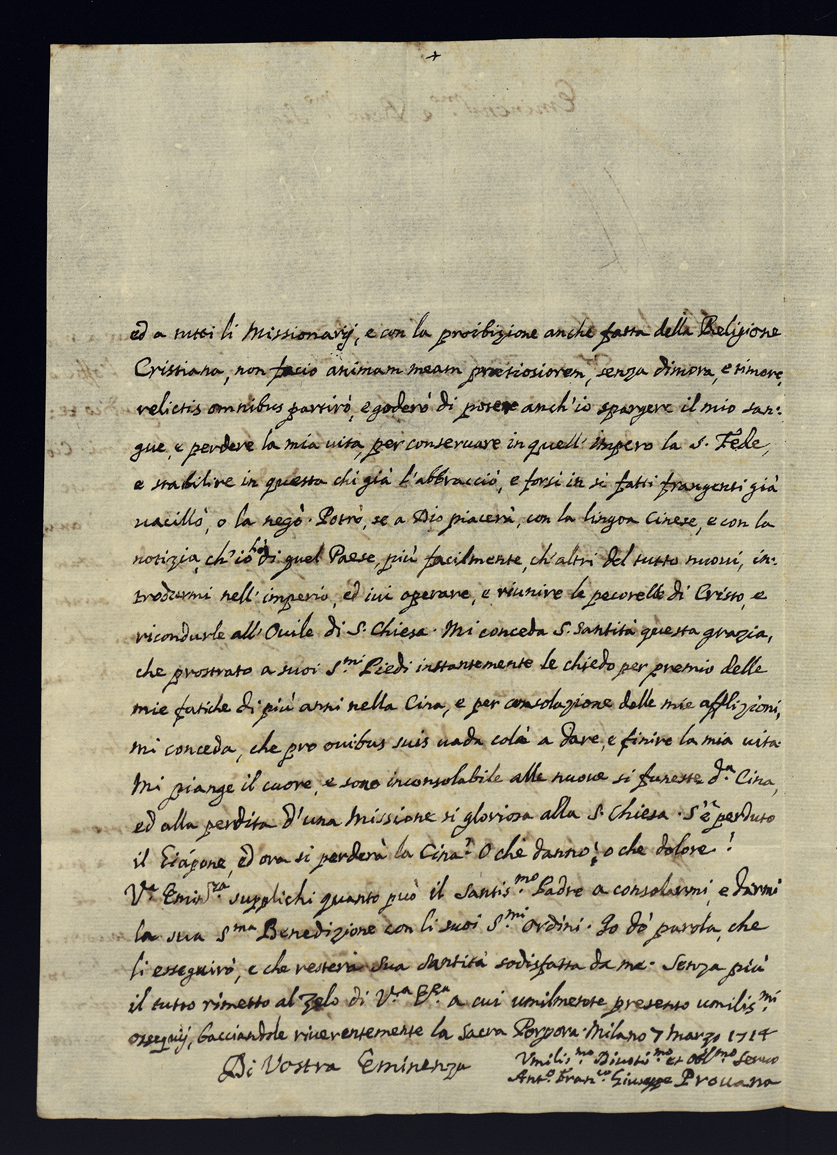 +
ed a tutti li Missionarij, e con la proibizione anche fatta della Religione
Cristiana, non facio animam meam prætiosiorem, senza dimora, e timore,
relictis omnibus partirò, e goderò di potere anch'io spargere il mio san:
gue, e perdere la mia vita, per conservare in quell'impero la S. Fede,
e stabilire in questa chi già l'abbracciò, e forsi in si fatti frangenti già
vacillò, o la negò. Potrò, se a Dio piacerà, con la lingoa Cinese, e con la
notizia, ch'io hò di quel Paese, più facilmente, ch'altri del tutto nuovi, in:
trodurmi nell'imperio, ed ivi operare, e riunire le pecorelle di Cristo, e
ricondurle all'Ovile di S. Chiesa. Mi conceda S. Santità questa grazia,
che prostrato a suoi S.mi Piedi instantemente le chiedo per premio delle
mie fatiche di più anni nella Cina, e per consolazione delle mie afflizioni,
mi conceda, che pro ovibus suis vada colà a dare, e finire la mia vita.
Mi piange il cuore, e sono inconsolabile alle nuove si funeste d.a Cina,
ed alla perdita d'una Missione si gloriosa alla S. Chiesa. S'è perduto
il Giapone, ed ora si perderà la Cina? O che danno! o che dolore!
V.a Emin.za supplichi quanto può il Santis.mo Padre a consolarmi, e darmi
la sua S.ma Benedizione con li suoi S.mi ordini. Io dò parola, che
li esseguirò, e che resterà Sua Santità sodisfatta da me. Senza più
il tutto rimetto al zelo di V.ra E.za a cui umilmente presento umilis.mi
ossequij, bacciandole riverentemente la Sacra Porpora. Milano 7 marzo 1714
Di Vostra Eminenza
Umilis.mo Divotis.mo et obl.mo Servo
Ant.o Fran.co Giuseppe Provana